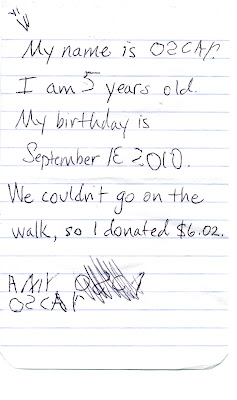 My name is OSCAr.
I am 5 years old.
My birthday is
September 2010.
We couldn't go on the
walk, so I donated $6.02.
OSCAr